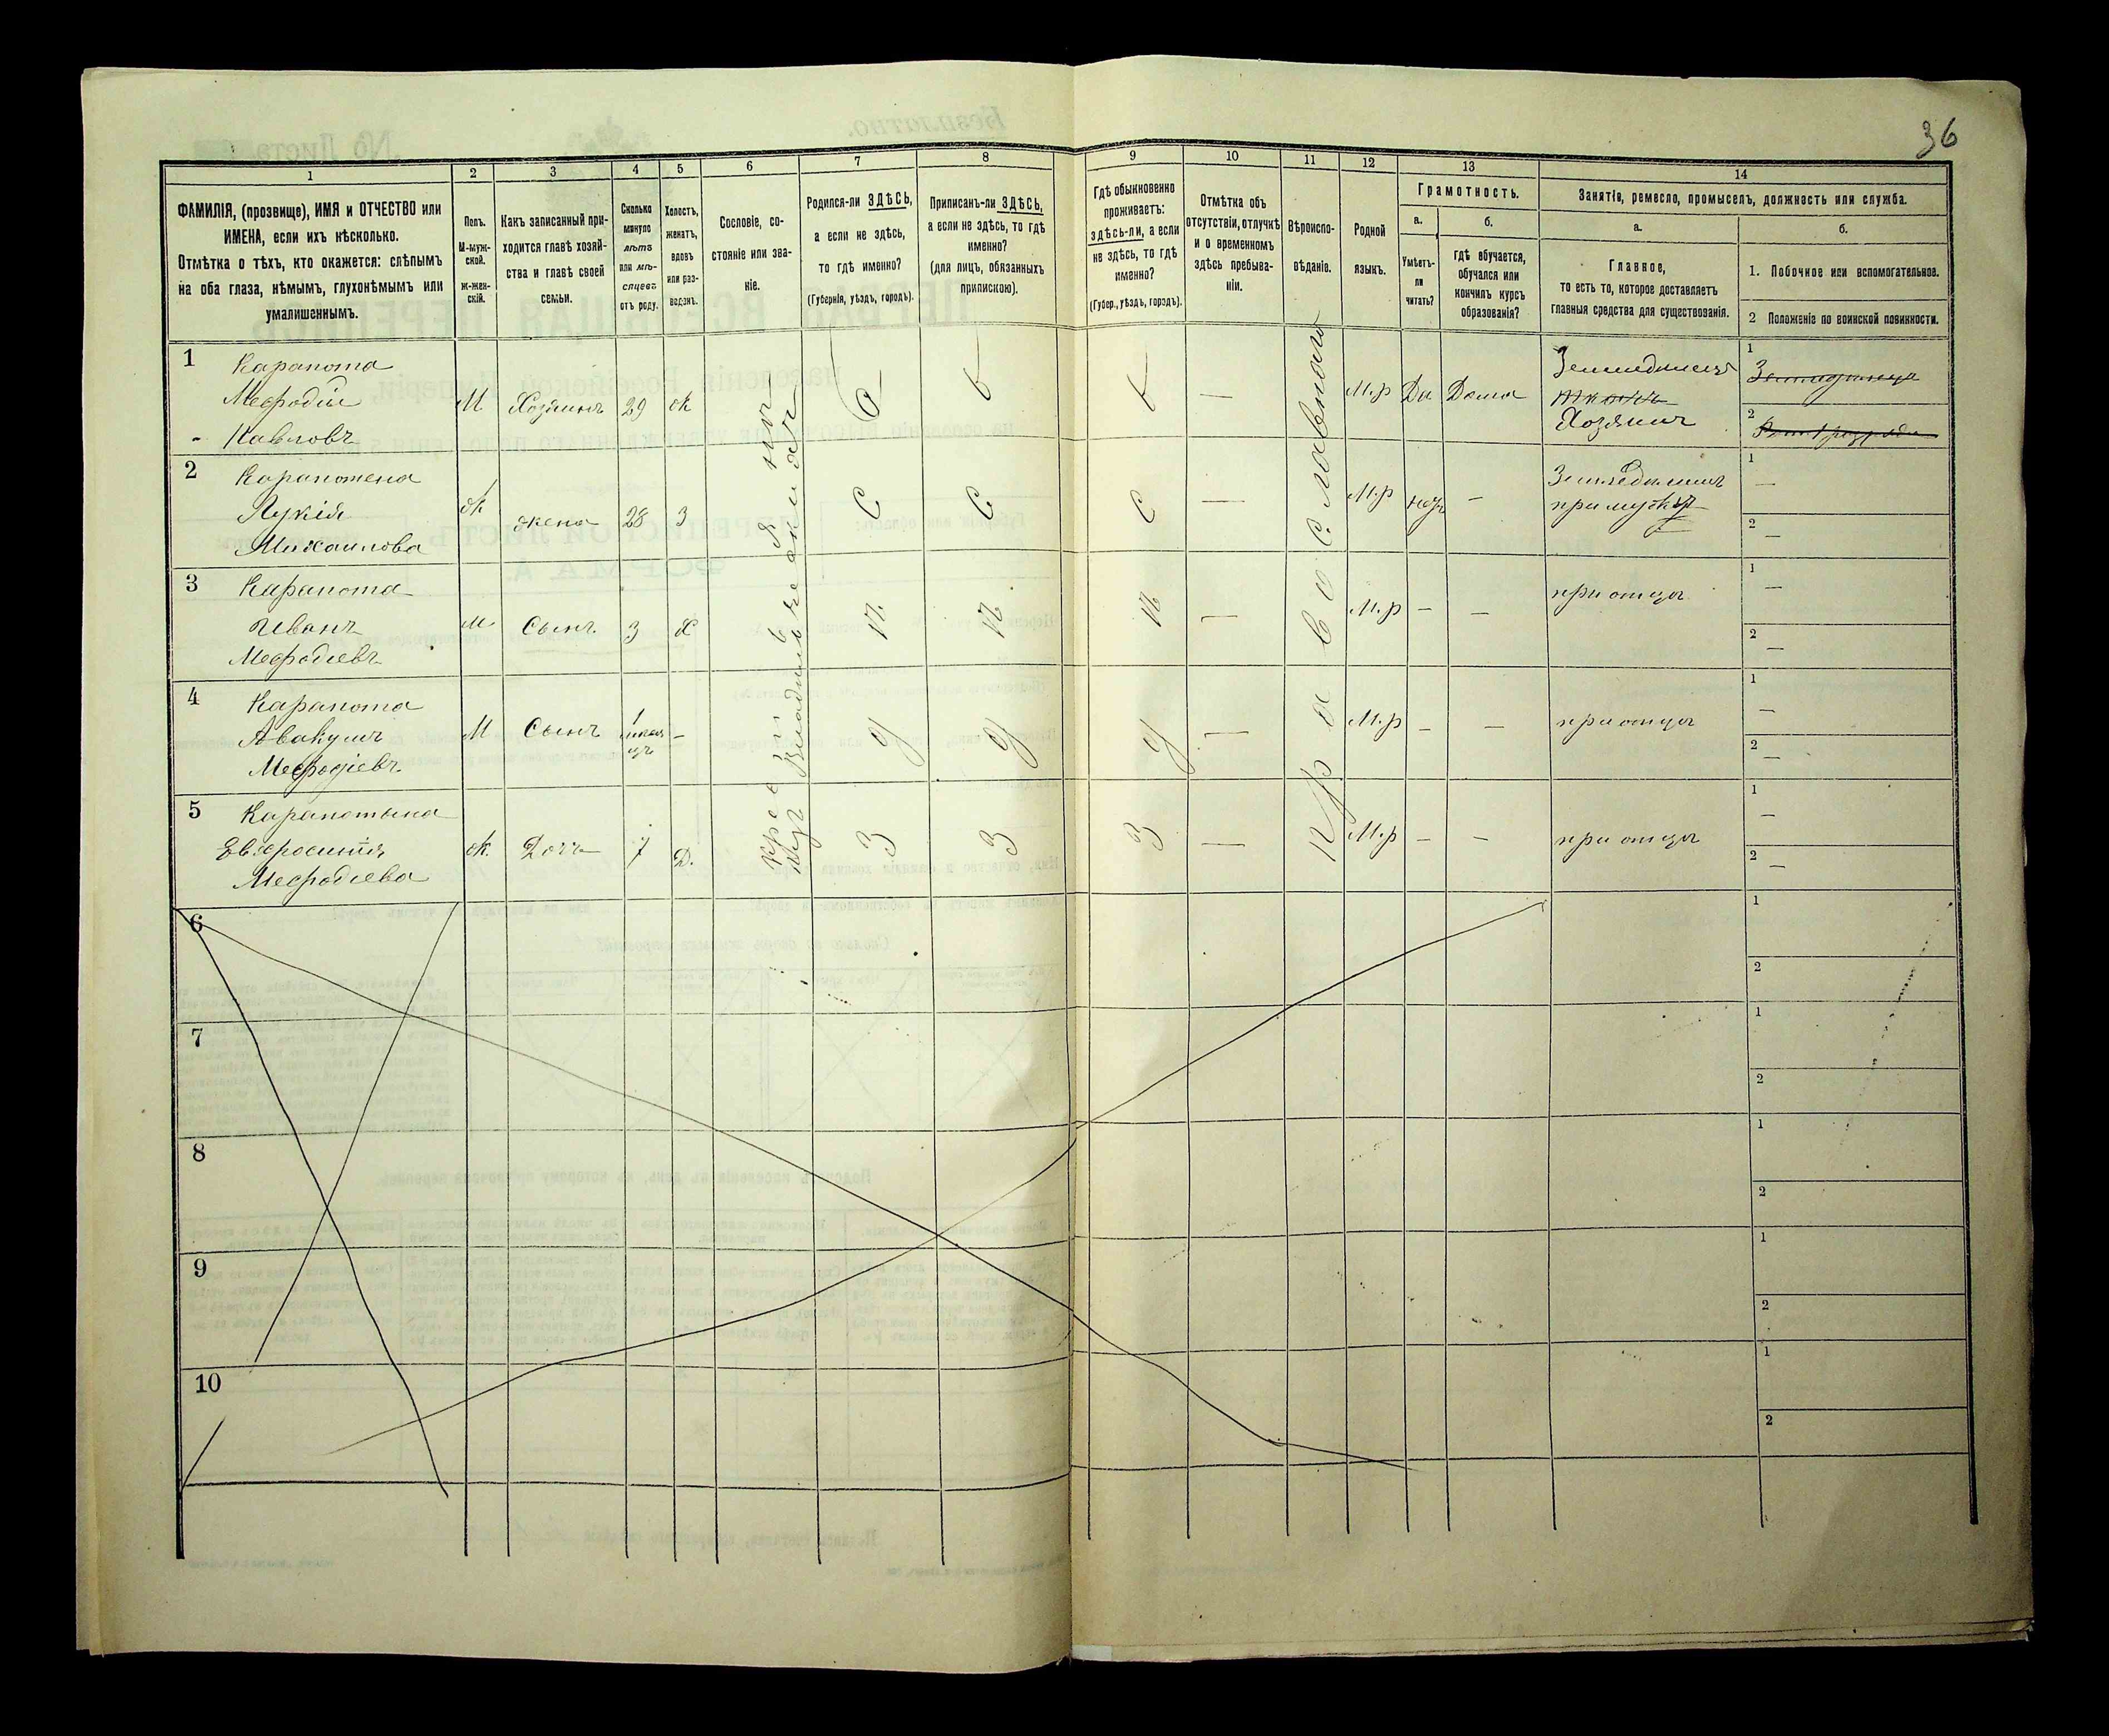 36
1
2
3
4
5
6
7
8
9
10
11
12
13
14
ФАМИЛІЯ, (прозвище), ИМЯ и ОТЧЕСТВО или
ИМЕНА, если ихъ нѣсколько.
Отмѣтка о тѣхъ, кто окажется: слѣпымъ
на оба глаза, нѣмымъ, глухонѣмымъ или
умалишеннымъ.
Полъ.
М-муж-
ской.
ж-жен-
скій.
Какъ записанный при-
ходится главѣ хозяй-
ства и главѣ своей
семьи.
Сколько
минуло
лѣтъ
или мѣ-
сяцевъ
отъ роду.
Холостъ,
женатъ,
вдовъ
или раз-
веденъ.
Сословіе, со-
стояніе или зва-
ніе.
Родился-ли ЗДѢСЬ,
а если не здѣсь,
то гдѣ именно?
(Губернія, уѣздъ, городъ).
Приписанъ-ли ЗДѢСЬ,
а если не здѣсь, то гдѣ
именно?
(для лицъ, обязанныхъ
припискою).
Гдѣ обыкновенно
проживаетъ:
здѣсь-ли, а если
не здѣсь, то гдѣ
именно?
(Губер., уѣздъ, городъ).
Отмѣтка объ
отсутствіи, отлучкѣ
и о временномъ
здѣсь пребыва-
ніи.
Вѣроиспо-
вѣданіе.
Родной
языкъ.
Грамотность.
а.
Умѣетъ-
ли
читать?
б.
гдѣ обучается,
обучался или
кончилъ курсъ
образованія?
Занятіе, ремесло, промыселъ, должность или служба.
а.
Главное,
то есть то, которое доставляетъ
главныя средства для существованія.
б.
1. Побочное или вспомогательное.
2 Положеніе по воинской повинности.
1
Карапота
Мефодій
Павловъ
М Хозяинъ 29 ж
— М.р Да Дома
Земледѣлецъ
Хозяинъ
1
2
2
Карапотена
Лукія
Михаилова
ж жена 28 З
— М.р нѣтъ —
1 —
2 —
3
Карапота
Иванъ
Мефодіевъ
м Сынъ 3 Х
— М.р — — при отцѣ
1 —
2 —
4
Карапота
Авакумъ
Мефодіевъ
М Сынъ 1 —
— М.р — — при отцѣ
1 —
2 —
5
Карапотына
Евфросинія
Мефодіева
ж. Дочь 7 Д.
— М.р — — при отцѣ
1 —
2 —
православнаго
6
1
2
7
1
2
8
1
2
9
1
2
10
1
2